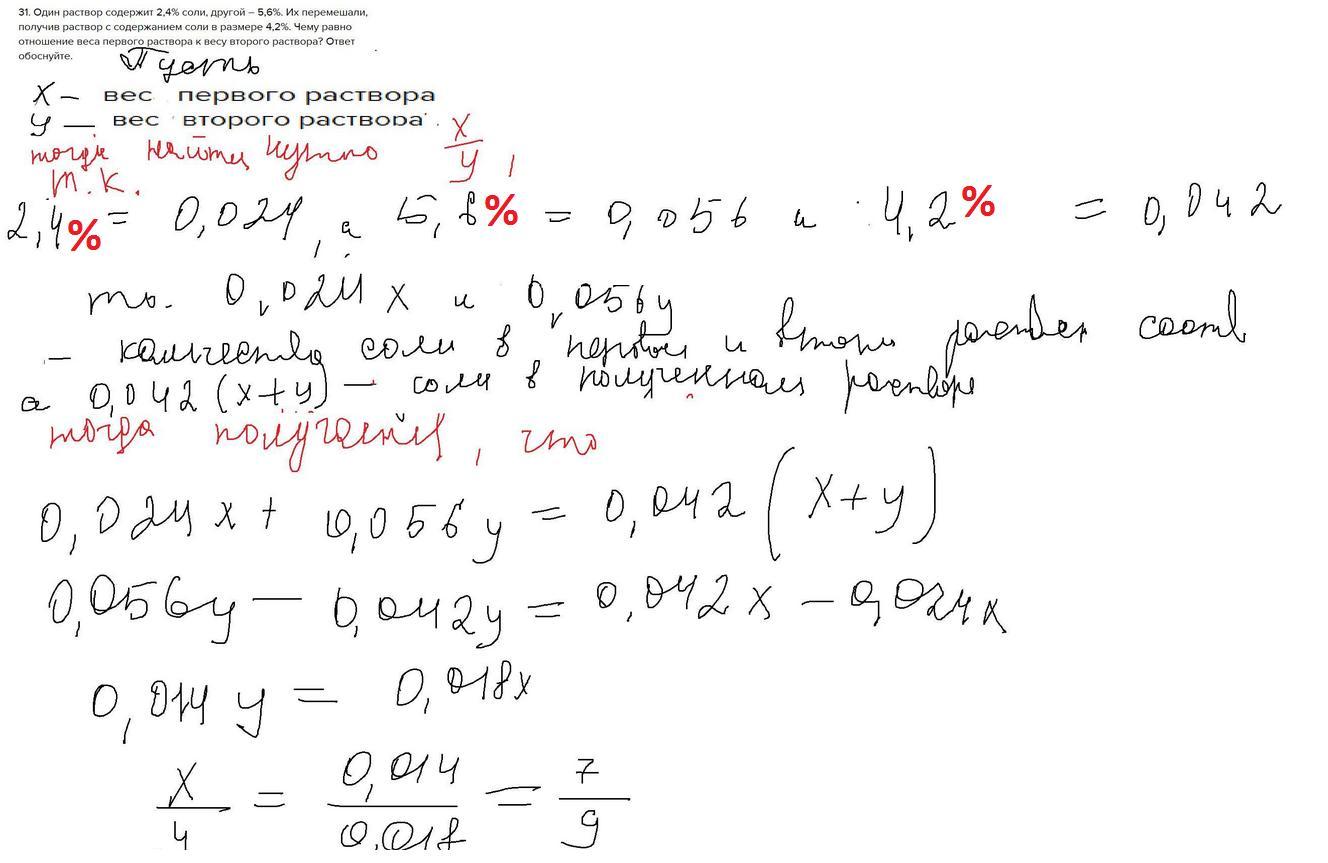 31. Один раствор содержит 2,4% соли, другой – 5,6%. Их перемешали,
получив раствор с содержанием соли в размере 4,2%. Чему равно
отношение веса первого раствора к весу второго раствора? Ответ
обоснуйте.
Пусть
x — вес первого раствора
y — вес второго раствора.
тогда найти нужно x/y,
т.к.
2,4% = 0,024, а 5,6% = 0,056 и 4,2% = 0,042
то. 0,024x и 0,056y
— количество соли в первом и втором раствор соотв
а 0,042(x+y) — соли в полученном растворе
тогда получается, что
0,024x + 0,056y = 0,042(x+y)
0,056y — 0,042y = 0,042x — 0,024x
0,014y = 0,018x
x/y = 0,014/0,018 = 7/9